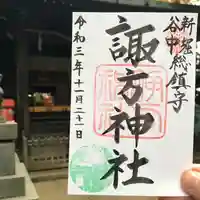 新堀
谷中
総鎮守
諏方神社
令和三年十一月二十一日